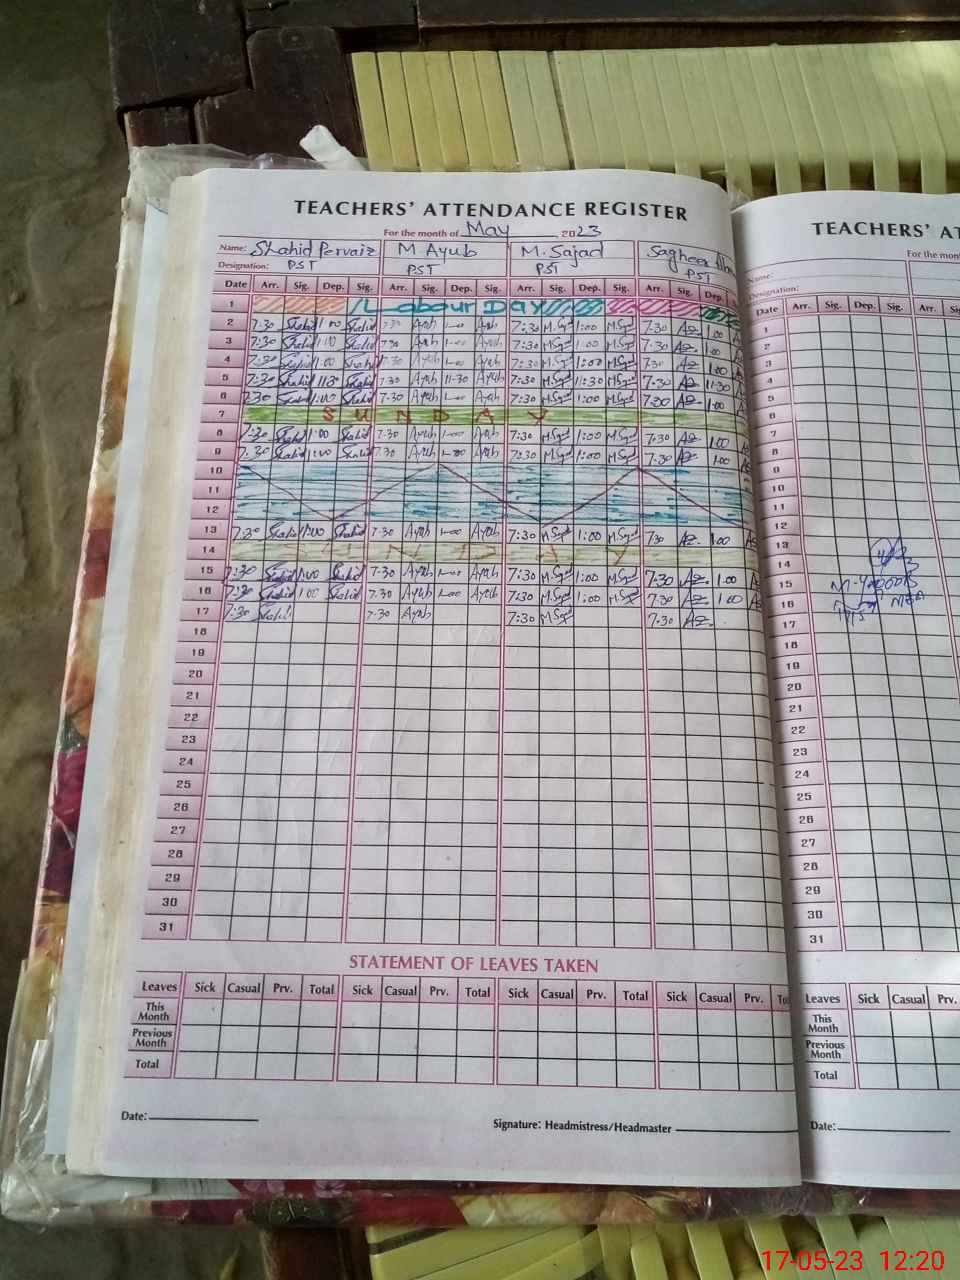 TEACHERS' ATTENDANCE REGISTER
For the month of May 2023
Name: Shahid Pervaiz M Ayub M. Sajad Sagheer
Designation: PST PST PST PST
Date Arr. Sig. Dep. Sig. Arr. Sig. Dep. Sig. Arr. Sig. Dep. Sig. Arr. Sig. Dep.
1 Labour Day
2 7:30 Shahid 1:00 Shahid 7-30 Ayub 1-00 Ayub 7:30 M.Sajad 1:00 M.Sajad 7.30 Az 1.00
3 7:30 Shahid 1:00 Shahid 7-30 Ayub 1-00 Ayub 7:30 M.Sajad 1:00 M.Sajad 7-30 Az 1.00
4 7:30 Shahid 1:00 Shahid 7-30 Ayub 1-00 Ayub 7:30 M.Sajad 1:00 M.Sajad 7.30 Az 1.00
5 7:30 Shahid 11:30 Shahid 7-30 Ayub 11-30 Ayub 7:30 M.Sajad 11:30 M.Sajad 7-30 Az 11-30
6 7:30 Shahid 1:00 Shahid 7-30 Ayub 1-00 Ayub 7:30 M.Sajad 1:00 M.Sajad 7:30 Az 1.00
7 SUNDAY
8 7:30 Shahid 1:00 Shahid 7-30 Ayub 1-00 Ayub 7:30 M.Sajad 1:00 M.Sajad 7.30 Az 1.00
9 7:30 Shahid 1:00 Shahid 7-30 Ayub 1-00 Ayub 7:30 M.Sajad 1:00 M.Sajad 7.30 Az 1.00
10
11
12
13 7:30 Shahid 1:00 Shahid 7-30 Ayub 1-00 Ayub 7:30 M.Sajad 1:00 M.Sajad 7.30 Az 1.00
14 SUNDAY
15 7:30 Shahid 1:00 Shahid 7-30 Ayub 1-00 Ayub 7:30 M.Sajad 1:00 M.Sajad 7.30 Az 1.00
16 7:30 Shahid 1:00 Shahid 7-30 Ayub 1-00 Ayub 7:30 M.Sajad 1:00 M.Sajad 7.30 Az 1.00
17 7:30 Shahid 7-30 Ayub 7:30 M.Sajad 7.30 Az
18
19
20
21
22
23
24
25
26
27
28
29
30
31
STATEMENT OF LEAVES TAKEN
Leaves Sick Casual Prv. Total Sick Casual Prv. Total Sick Casual Prv. Total Sick Casual Prv.
This Month
Previous Month
Total
Date:
Signature: Headmistress/Headmaster
TEACHERS'
For the
Name:
Designation:
Date Arr. Sig. Dep. Sig. Arr.
1
2
3
4
5
6
7
8
9
10
11
12
13
14
15
16
17
18
19
20
21
22
23
24
25
26
27
28
29
30
31
Leaves Sick Casual Prv.
This Month
Previous Month
Total
Date:
17-05-23 12:20